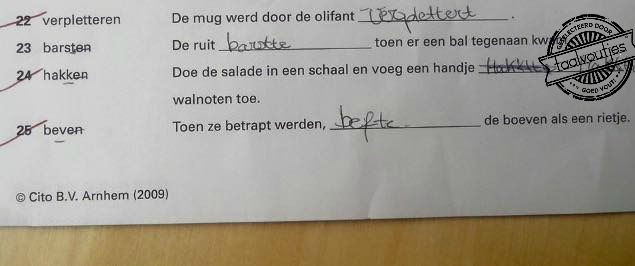 22 verpletteren De mug werd door de olifant verplettert.
23 barsten De ruit barstte toen er een bal tegenaan kw
24 hakken Doe de salade in een schaal en voeg een handje
walnoten toe.
25 beven Toen ze betrapt werden, befte de boeven als een rietje.
© Cito B.V. Arnhem (2009)
GESELECTEERD DOOR
taalvoutjes
GOED VOUT!